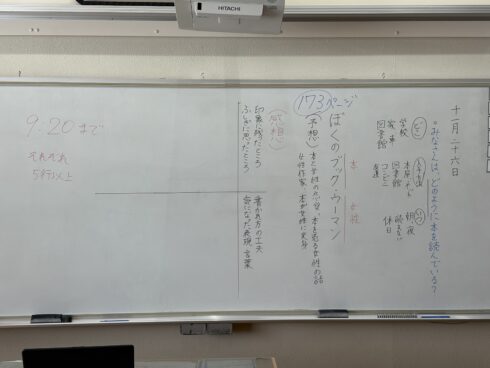 HITACHI
十一月二十六日
◎みなさんは、どのように本を読んでいる?
どこ
学校
家、車
図書館
入手方法
本屋
図書館
コンビニ
友達
いつ
朝、夜
読まない
休日
173ページ
ぼくのブック・ウーマン
本
女性
(予想)
本と女性の恋愛、本を売る女性の話
女性作家、本が女性に変身
(感想)
印象に残ったところ
ふしぎに思ったところ
書かれ方の工夫
気になった表現、言葉
9:20まで
それぞれ
5行以上